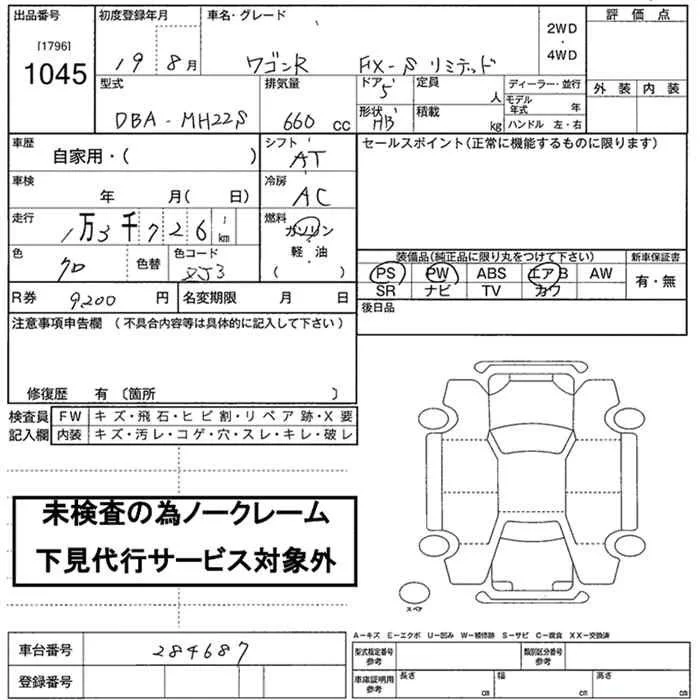 出品番号 初度登録年月 車名・グレード 評価点
[1796] 1045 19 8月 ワゴンR FX-S リミテッド 2WD・4WD
外装 内装
型式 排気量 ドア 定員 ディーラー・並行
DBA-MH22S 660 cc 5 人 モデル年式 年
形状 積載 ハンドル 左・右
HB kg
車歴 シフト セールスポイント(正常に機能するものに限ります)
自家用・( ) AT
車検 冷房
年 月( 日) AC
走行 燃料
1万3千726 km ガソリン・軽油
( )
装備品(純正品に限り丸をつけて下さい) 新車保証書
色 色替 色コード PS PW ABS エアB AW 有・無
クロ ZJ3 SR ナビ TV カワ
R券 9200 円 名変期限 月 日 後日品
注意事項申告欄 (不具合内容等は具体的に記入して下さい)
修復歴 有〔箇所 〕
検査員 FW キズ・飛石・ヒビ割・リペア跡・X要
記入欄 内装 キズ・汚レ・コゲ・穴・スレ・キレ・破レ
未検査の為ノークレーム
下見代行サービス対象外
スペア
A-キズ E-エクボ U-凹み W-補修跡 S-サビ C-腐食 XX-交換済
車台番号 284687 型式指定番号 参考 類別区分番号 参考
登録番号 車庫証明用 参考 長さ cm 幅 cm 高さ cm